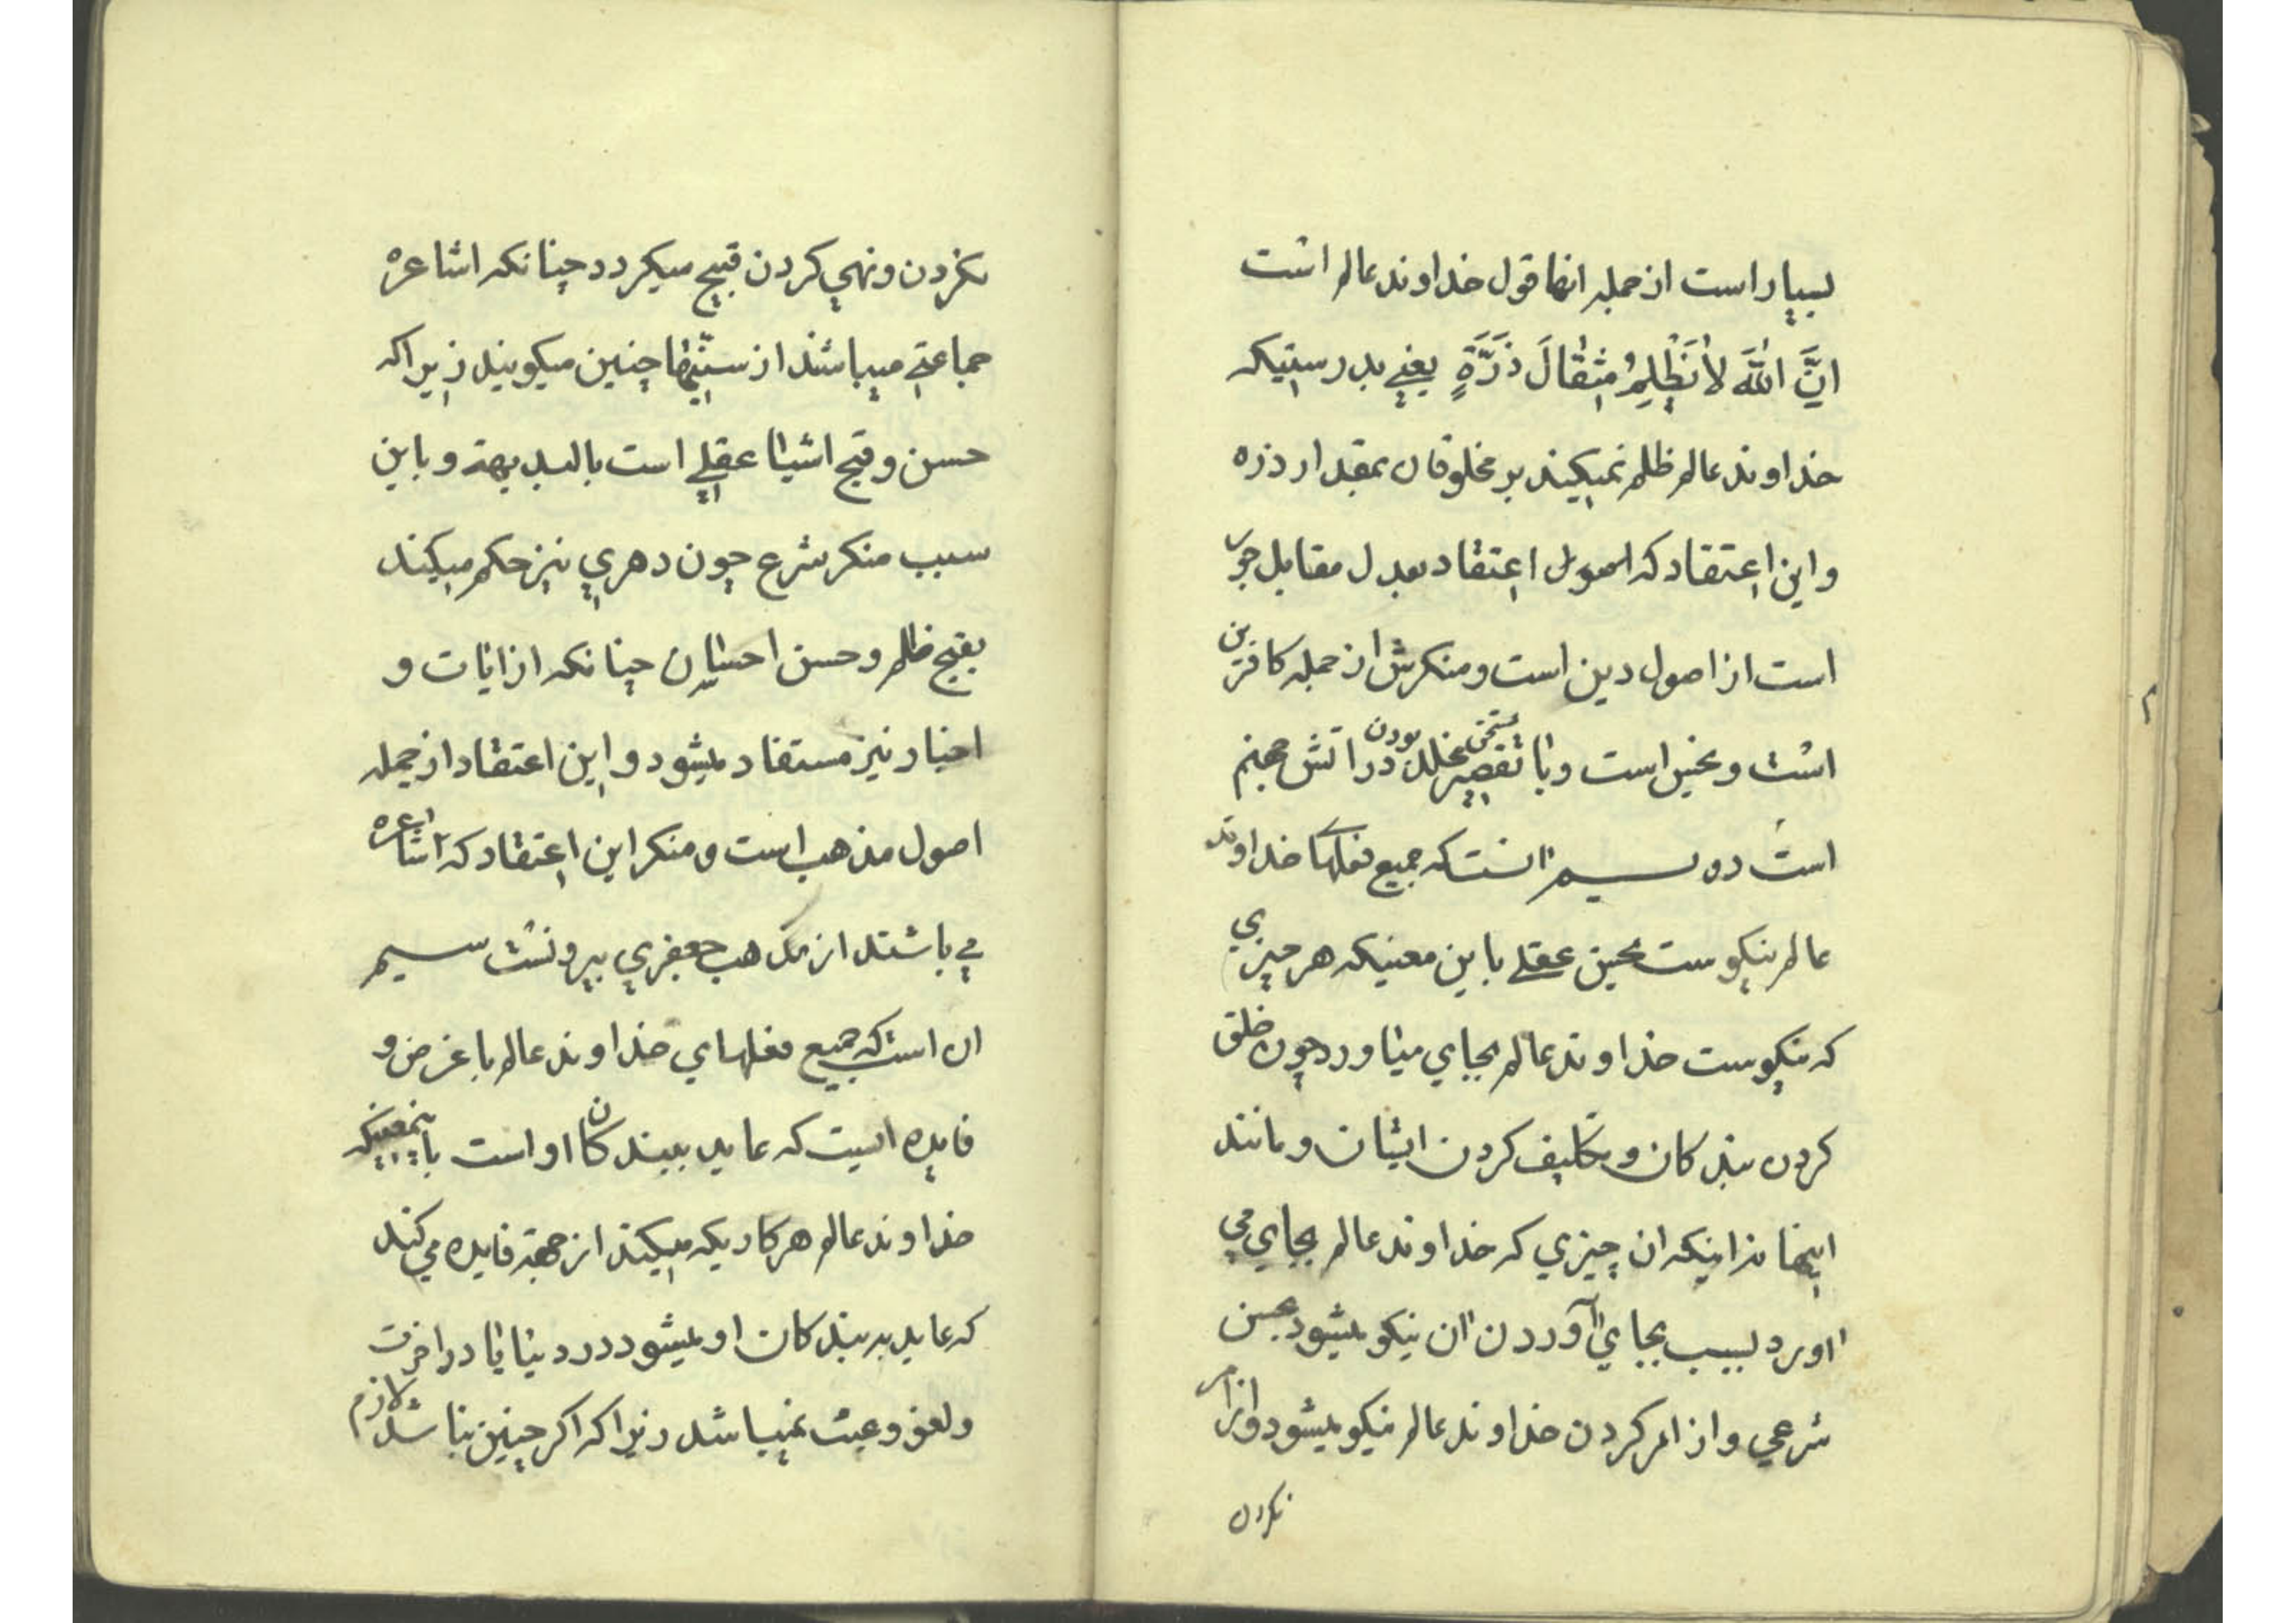 بسیار است از جمله انها قول خداوند عالم است
اِنَّ اللّٰهَ لاٰ یَظْلِمُ مِثْقٰالَ ذَرَّةٍ یعنے بدرستیکه
خداوند عالم ظلم نمیکند بر مخلوقان بمقدار ذره
و این اعتقاد که اصول اعتقاد بعدل مقابل جور
است از اصول دین است و منکرش از جمله کافرین
است و نجس است و با تقصیر مستحق مخلد بودن در اتش جهنم
است دویم انست که جمیع فعلهاے خداوند
عالم نیکوست بحسن عقلے باین معنیکه هر چیزی
که نیکوست خداوند عالم بجای میاورد چون خلق
کردن بندکان و تکلیف کردن ایشان و مانند
اینها نه اینکه ان چیزی که خداوند عالم بجای می
اورد بسبب بجای آوردن ان نیکو میشود بحسن
شرعی و از امر کردن خداوند عالم نیکو میشود و از امر
نکردن
نکردن و نهی کردن قبیح میکردد چنانکه اشاعره
جماعتے میباشند از سنّیها چنین میکویند زیراکه
حسن و قبح اشیا عقلے است بالبدیهة و باین
سبب منکر شرع چون دهری نیز حکم میکند
بقبح ظلم و حسن احسان چنانکه از ایات و
اخبار نیز مستفاد میشود و این اعتقاد از جمله
اصول مذهب است و منکر این اعتقاد که اشاعره
مے باشند از مذهب جعفری بیرونست سیم
ان است که جمیع فعلهای خداوند عالم با غرض و
فایده ایست که عاید ببندکان او است باینمعنیکه
خداوند عالم هر کاریکه میکند از جهة فایده می کند
که عاید بر بندکان او میشود در دنیا یا در اخرت
و لغو و عبث نمیباشد زیرا که اکر چنین نباشد لازم